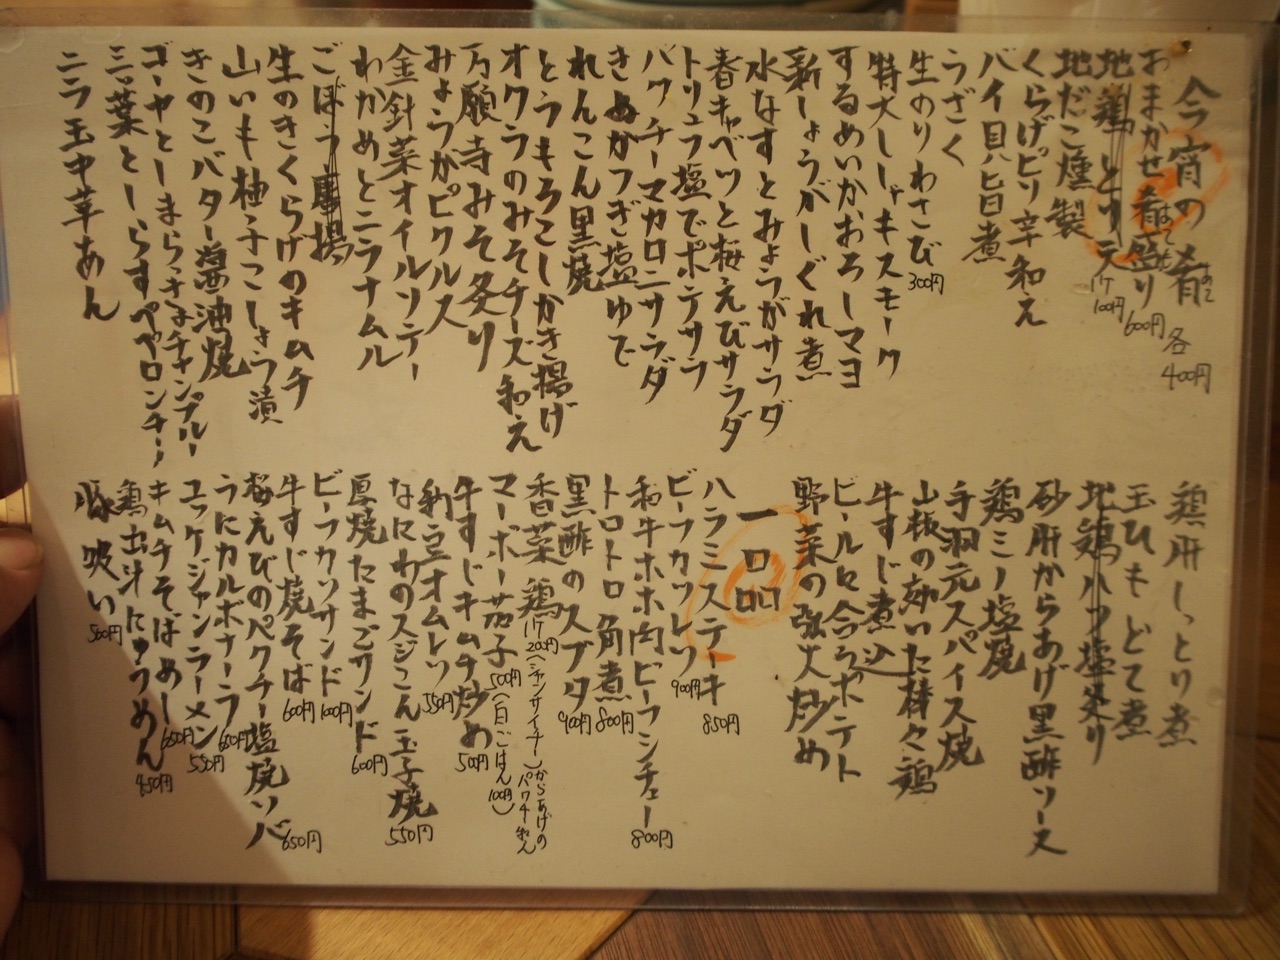 今宵の肴 各400円
おまかせ肴盛り 600円
地鶏とり天 1ケ100円
地だこ燻製
くらげピリ辛和え
バイ貝旨煮
うざく
生のりわさび 300円
特大ししゃもスモーク
するめいかおろしマヨ
新しょうがしぐれ煮
水なすとみょうがサラダ
春キャベツと桜えびサラダ
トリュフ塩でポテサラ
パクチーマカロニサラダ
きぬかつぎ塩ゆで
れんこん黒焼
とうもろこしかき揚げ
オクラのみそチーズ和え
万願寺みそ炙り
みょうがピクルス
金針菜オイルソテー
わかめとニラナムル
ごぼう唐揚
生のきくらげのキムチ
山いも柚子こしょう漬
きのこバター醤油焼
ゴーヤとしまらっきょチャンプルー
三つ葉としらすペペロンチーノ
ニラ玉中華あん
鶏肝しっとり煮
玉ひもどて煮
地鶏ハツ塩炙り
砂肝からあげ黒酢ソース
鶏ミノ塩焼
手羽元スパイス焼
山椒の効いた棒々鶏
牛すじ煮込
ビールに合うポテト
野菜の強火炒め
一品
ハラミステーキ 850円
ビーフカツレツ 900円
和牛ホホ肉ビーフシチュー 800円
トロトロ角煮 800円
黒酢のスブタ 900円
香菜鶏 1ケ200円 (シャンサイチー)からあげのパクチー和え
マーボー茄子 500円 (白ごはん100円)
牛すじキムチ炒め 500円
納豆オムレツ 550円
なにわのスジこん玉子焼 550円
厚焼たまごサンド 600円
ビーフカツサンド 1000円
牛すじ焼そば 600円
桜えびのパクチー塩焼ソバ 650円
うにカルボナーラフン 650円
ユッケジャンラーメン 550円
キムチそばめし 650円
鶏出汁にゅうめん 450円
豚吸い 500円